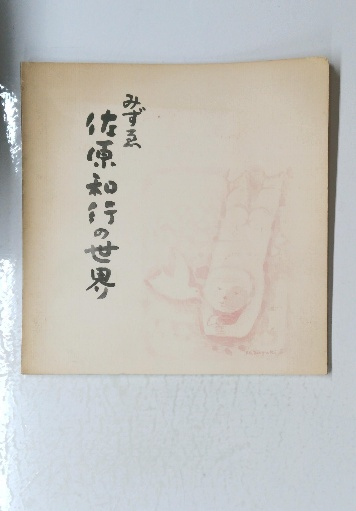 みずゑ
佐原和行の世界